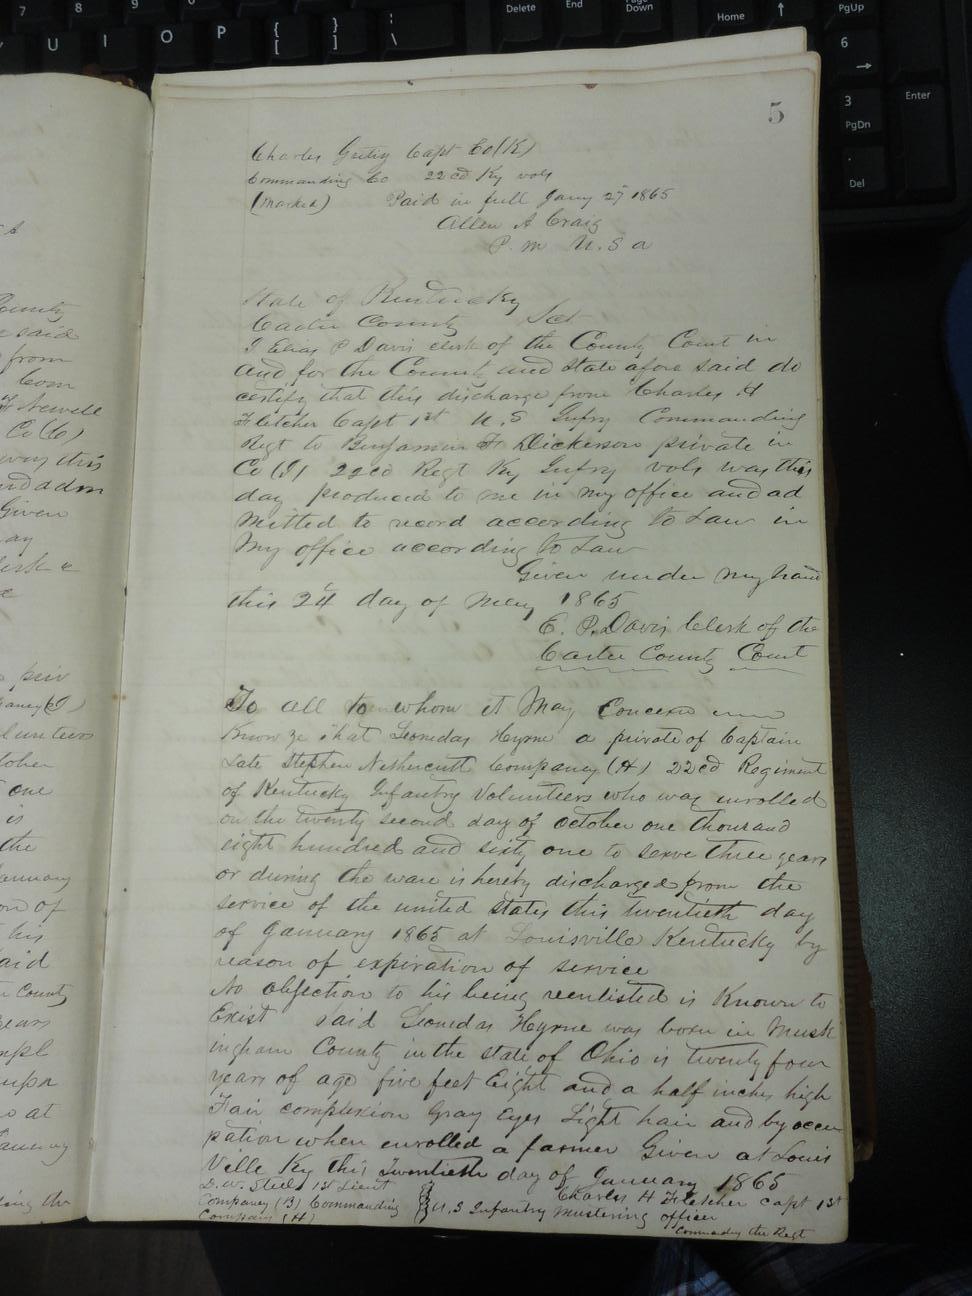 5
Charles Gutig Capt Co (K)
Commanding Co 22cd Ky vols
(Marked) Paid in full Jany 27 1865
Allen A Craig
P. m U. S a
State of Kentucky
Carter County Sct
I Elias P Davis clerk of the County Court in
and for the County and State afore said do
certify that this discharge from Charles H
Fletcher Capt 1st U. S Infry Commanding
Regt to Benjamin F Dickerson private in
Co (I) 22cd Regt Ky Infry vols was this
day produced to me in my office and ad
mitted to record according to Law in
My office according to Law
Given under my hand
this 24 day of May 1865
E. P. Davis Clerk of the
Carter County Court
To all to whom it May Concern
Know ye that Leonidas Hyrne a private of Captain
Late Stephen Nethercutt Company (H) 22cd Regiment
of Kentucky Infantry Volunteers who was enrolled
on the twenty second day of October one thousand
eight hundred and sixty one to serve three years
or during the ware is hereby discharged from the
service of the united states this twentieth day
of January 1865 at Louisville Kentucky by
reason of expiration of service
No objection to his being reenlisted is Known to
Exist Said Leonidas Hyrne was born in Musk
ingham County in the state of Ohio is twenty four
years of age five feet Eight and a half inches high
Fair complexion Gray Eyes Light hair and by occu
pation when enrolled a farmer Given at Louis
Ville Ky this Twentieth day of January 1865
D. W. Steele 1st Lieut Charles H Fletcher Capt 1st
Company (B) Commanding U. S Infantry Mustering officer
Company (H) Commading the Regt